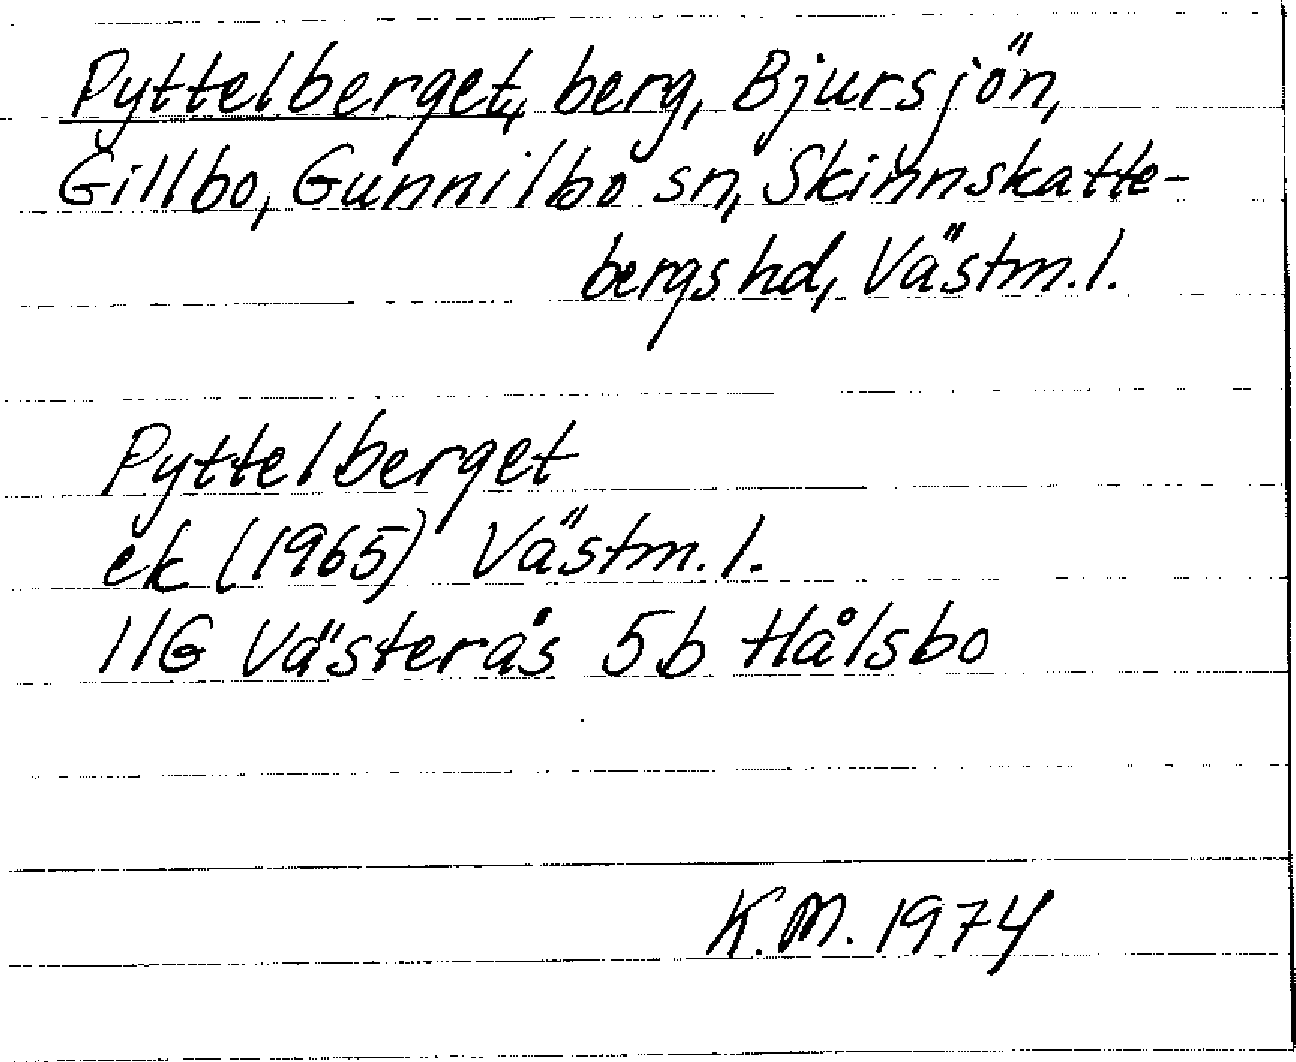 Pyttelberget, berg, Bjursjön,
Gillbo, Gunnilbo sn, Skinnskatte-
bergs hd, Västm.l.
Pyttelberget
ek (1965) Västm.l.
11G Västerås 5b Hålsbo
K.M. 1974